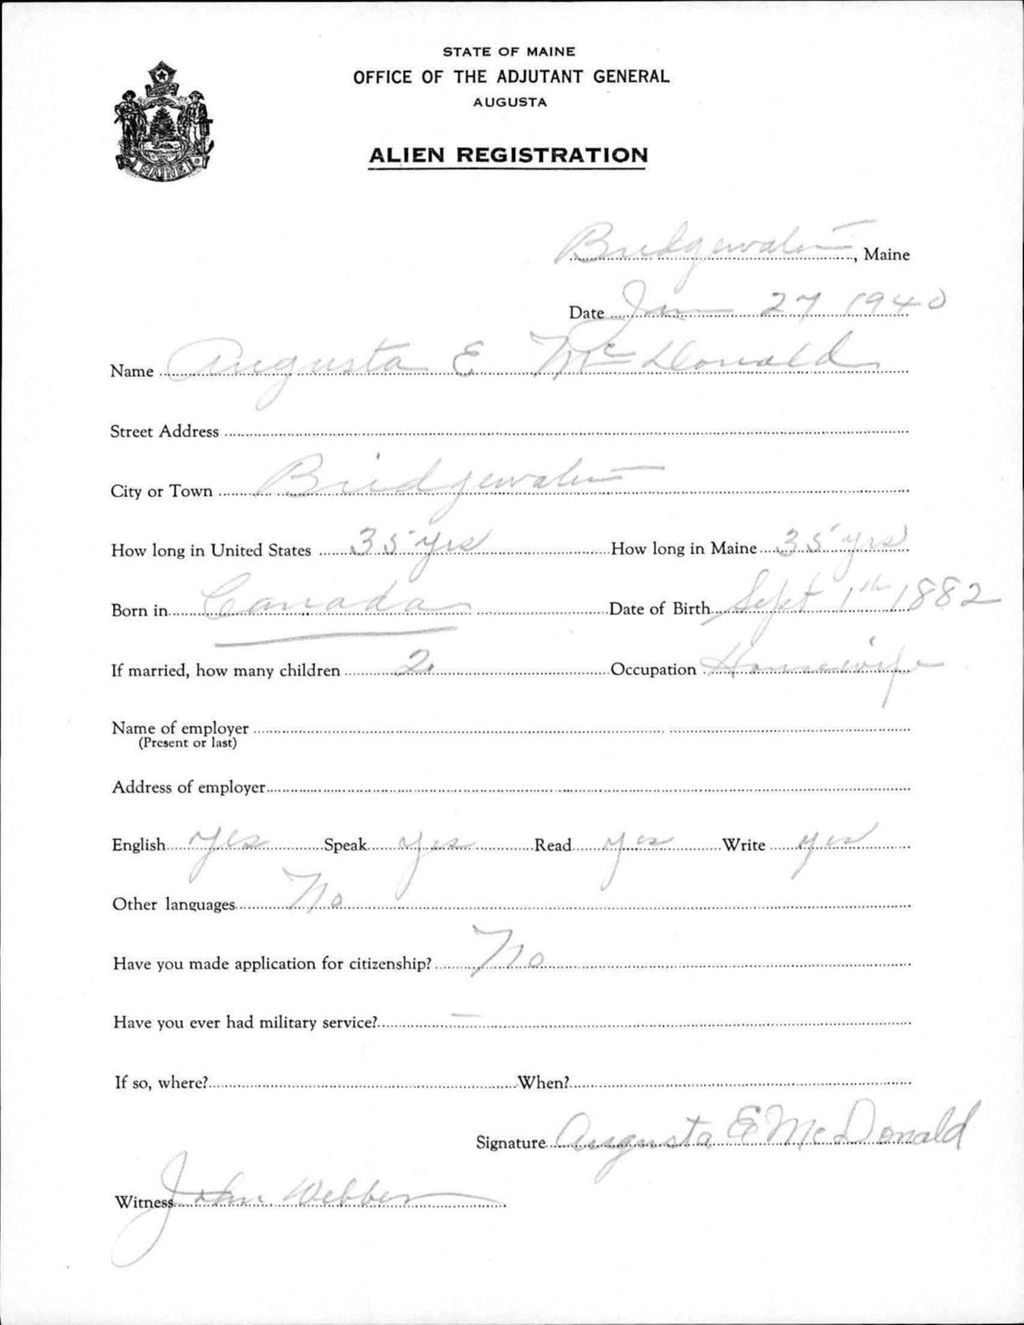 STATE OF MAINE
OFFICE OF THE ADJUTANT GENERAL
AUGUSTA
ALIEN REGISTRATION
MAINE
Bridgewater, Maine
Date Jan 27 1940
Name Augusta E McDonald
Street Address
City or Town Bridgewater
How long in United States 35 yrs How long in Maine 35 yrs
Born in Canada Date of Birth Sept 1th 1882
If married, how many children 2. Occupation Housewife
Name of employer
(Present or last)
Address of employer
English yes Speak yes Read yes Write yes
Other languages No
Have you made application for citizenship? No
Have you ever had military service? —
If so, where? When?
Signature Augusta E McDonald
Witness John Webber